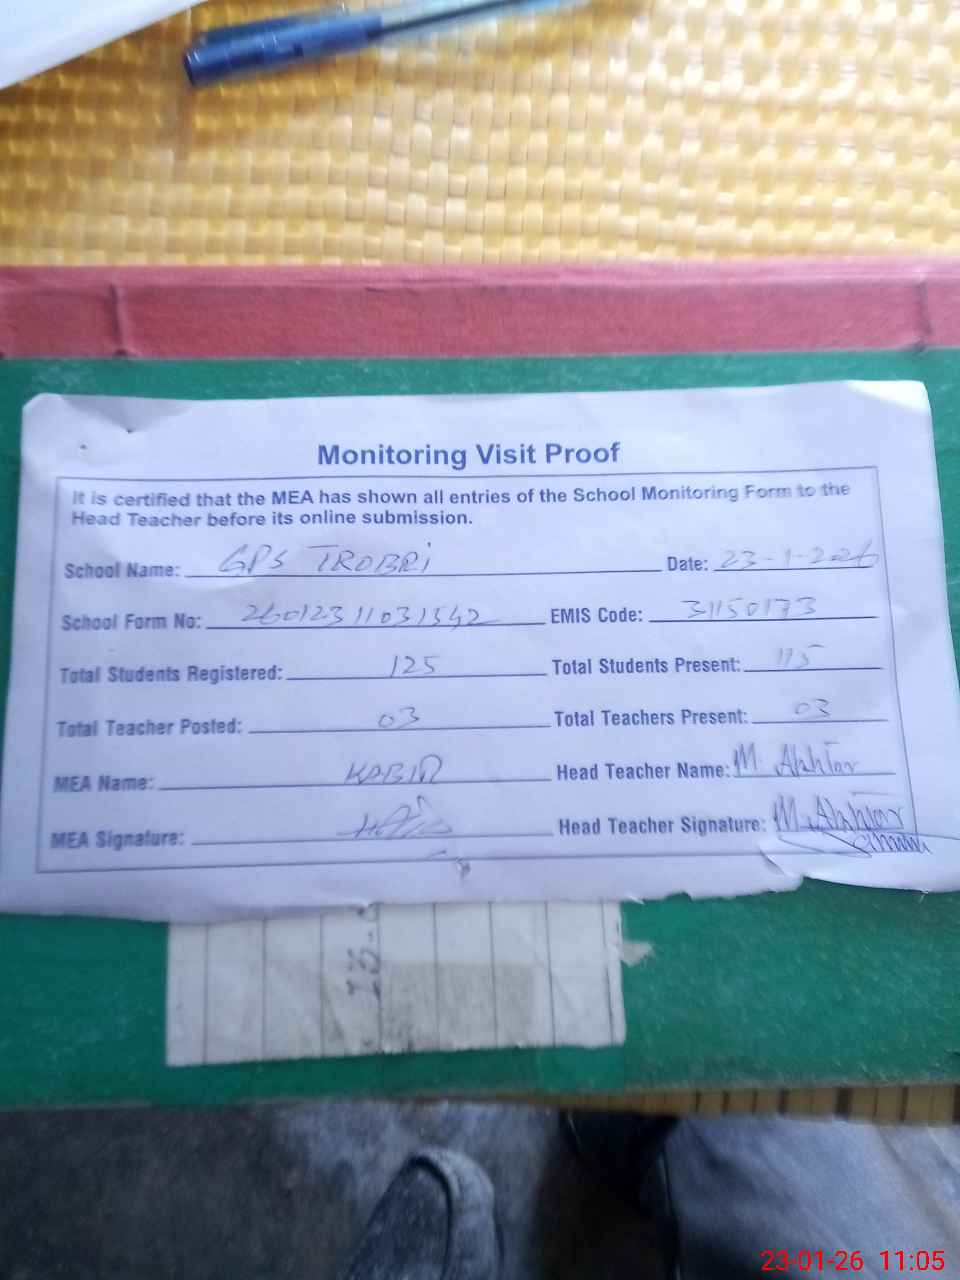 Monitoring Visit Proof
It is certified that the MEA has shown all entries of the School Monitoring Form to the
Head Teacher before its online submission.
School Name: GPS TROBRi Date: 23-1-2026
School Form No: 26012311031542 EMIS Code: 31150173
Total Students Registered: 125 Total Students Present: 115
Total Teacher Posted: 03 Total Teachers Present: 03
MEA Name: KABIR Head Teacher Name: M. Akhtar
MEA Signature: Head Teacher Signature: M. Akhtar
23-01-26 11:05